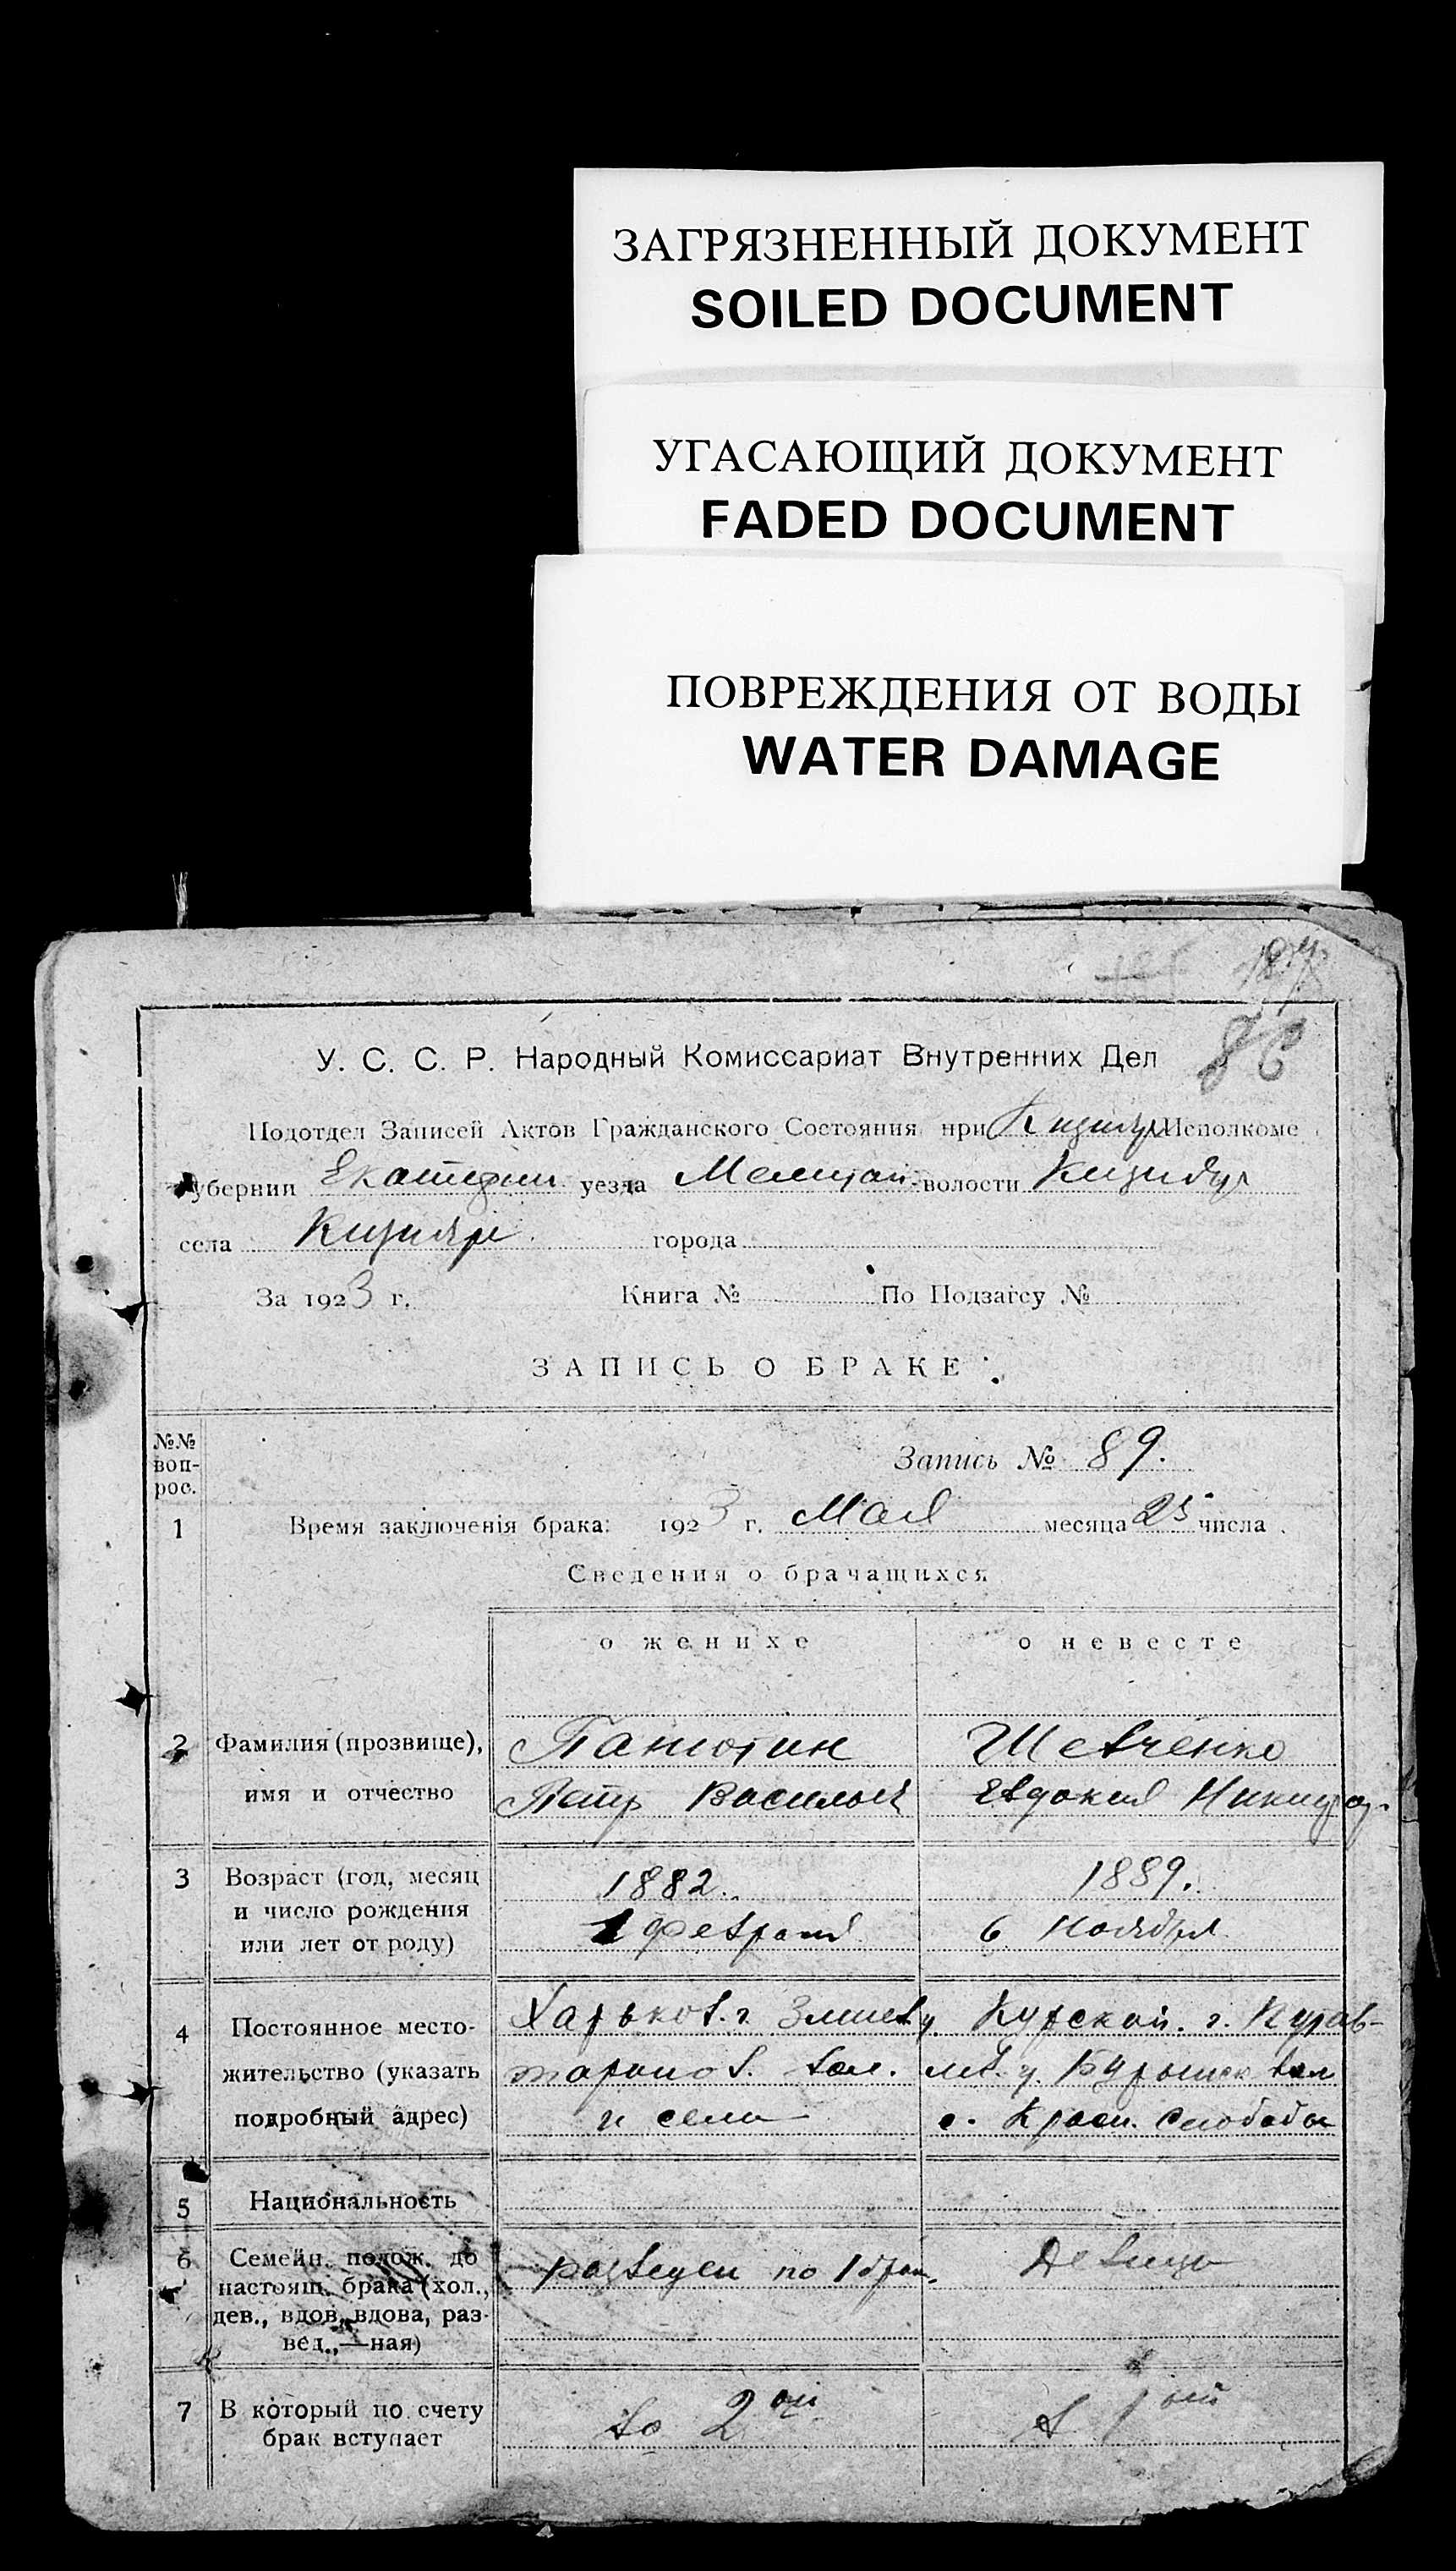 ЗАГРЯЗНЕННЫЙ ДОКУМЕНТ
SOILED DOCUMENT
УГАСАЮЩИЙ ДОКУМЕНТ
FADED DOCUMENT
ПОВРЕЖДЕНИЯ ОТ ВОДЫ
WATER DAMAGE
86
У. С. С. Р. Народный Комиссариат Внутренних Дел
Подотдел Записей Актов Гражданского Состояния при Кизияр Исполкоме
губернии Екатерин уезда Мелитоп волости Кизияр
села Кизияре города
За 1923 г. Книга № По Подзагсу №
ЗАПИСЬ О БРАКЕ
№№ воп-рос.
Запись № 89.
1 Время заключенія брака: 1923 г. Мая месяца 25 числа
Сведения о брачащихся
о женихе о невесте
2 Фамилия (прозвище), Панютин Шевченко
имя и отчество Петр Василье Евдокия Никит
3 Возраст (год, месяц 1882. 1889.
и число рождения 1 февраля 6 Ноября
или лет от роду)
4 Постоянное место- Харьков. г. Змиев у. Курской. г. Путив-
жительство (указать тарано в. вол. ль. у. Бурынск вол
подробный адрес) и села с. Красн. Слобода
5 Национальность
6 Семейн. полож. до разведен по 1 брак. Девица
настоящ. брака (хол.,
дев., вдов, вдова, раз-
вед.,—ная)
7 В который по счету во 2ой в 1ый
брак вступает